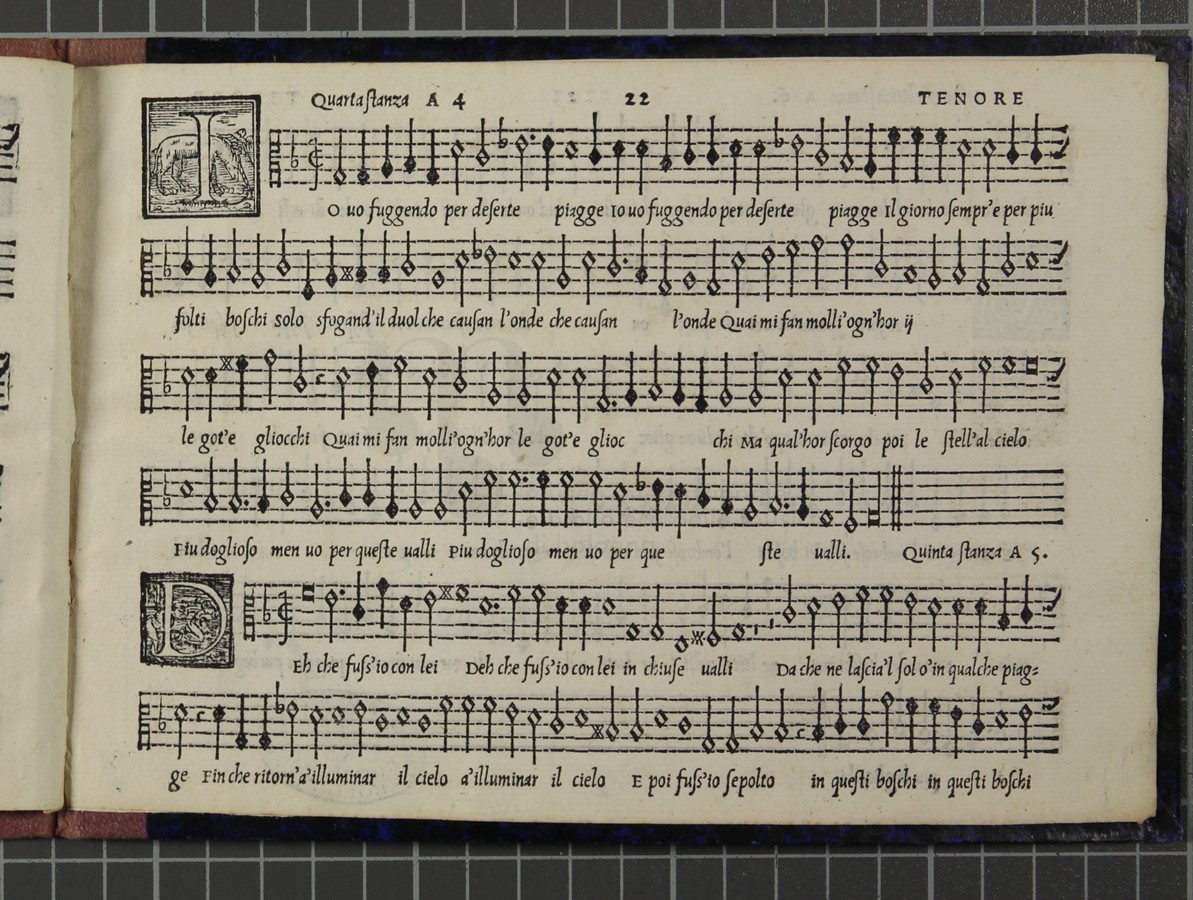 Quarta stanza A 4 22 TENORE
IO uo fuggendo per deserte piagge Io uo fuggendo per deserte piagge Il giorno sempr'e per piu
folti boschi Solo sfogand'il duol che causan l'onde che causan l'onde Quai mi fan molli'ogn'hor ij
le got'e gliocchi Quai mi fan molli'ogn'hor le got'e glioc chi Ma qual'hor scorgo poi le stell'al cielo
Piu doglioso men uo per queste ualli Piu doglioso men uo per que ste ualli. Quinta stanza A 5.
DEh che fuss'io con lei Deh che fuss'io con lei in chiuse ualli Da che ne lascia'l sol o'in qualche piag=
ge Fin che ritorn'a'illuminar il cielo a'illuminar il cielo E poi fuss'io sepolto in questi boschi in questi boschi